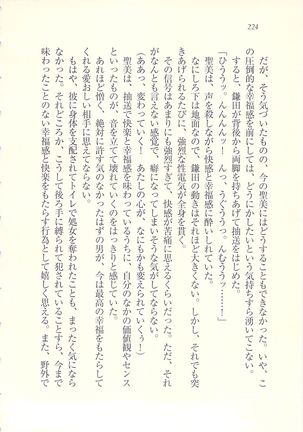 224
だが、そう気づいたものの、今の聖美にはどうすることもできなかった。いや、こ
の圧倒的な幸福感を前にしては、どうにかしたいという気持ちすら湧いてこない。
すると、鎌田が背後から両脚を持ちあげて抽送をはじめた。
「ひううッ。んんんんッ！ んっ、うぐううっ、んむうう……！」
聖美は、声を殺しながら快感と幸福感に酔いしれていた。
なにしろ下は地面なので、鎌田の動きはそれほど大きくない。しかし、それでも突
きあげられるたびに、強烈な性電気が全身を貫く。
その信号はあまりにも強烈すぎて、快感が苦痛に思えるくらいだった。ただ、それ
がなんとも言えない感覚で、癖になってしまいそうな気がしてならない。
（ああっ、変わっていく……あたしの心が、なにもかも変えられていくぅ！）
聖美は、抽送で快楽と幸福感を味わっているうちに、自分のなかの価値観やセンス
といったものが、音を立てて壊れていくのをはっきりと感じていた。
あれほど憎く、絶対に許す気のなかったはずの男が、今は最高の幸福をもたらして
くれる愛おしい相手に思えてならない。
もはや、彼に身体を支配されてトイレで処女を奪われたことも、まったく気になら
なかった。それどころか、こうして後ろ手に縛られて犯されていることすら、今まで
味わったことのない幸福感と快楽をもたらす行為として嬉しく思える。また、野外で